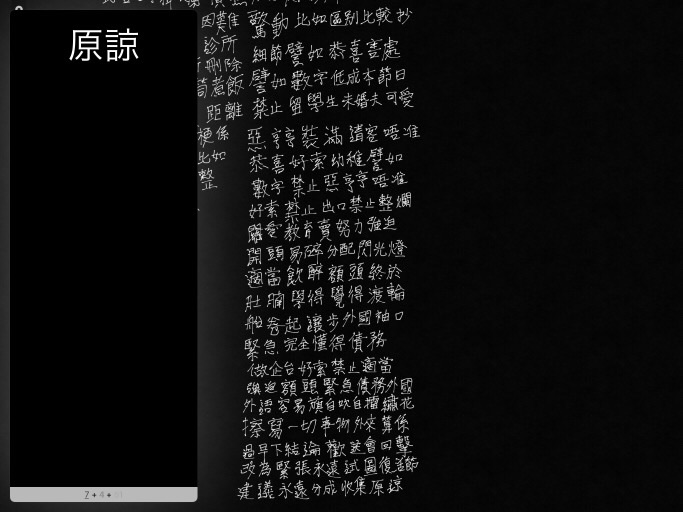 原諒
因難 驚動 比如區別比較 抄
診所 細節譬如恭喜害處
刪除 譬如數字低成本節日
煮飯 禁止留學生未婚夫可愛
距離
梗係 惡亨亨裝滿請客唔准
比如 恭喜好索幼稚譬如
整 數字禁止惡亨亨唔准
好索禁止出口禁止整爛
關愛教育賣努力強迫
開頭易碎分配閃光燈
適當飲醉額頭終於
肚腩學得覺得渡輪
船卷起讓步外國袖口
緊急完全懂得債務
做企台好索禁止適當
強迫額頭緊急債務外國
外語容易旗自吹自擂繡花
擦寫一切事物外來算係
過早下結論歡送會回擊
改為緊張永遠試圖復活節
建議永遠分成收集原諒
2 + 4 +